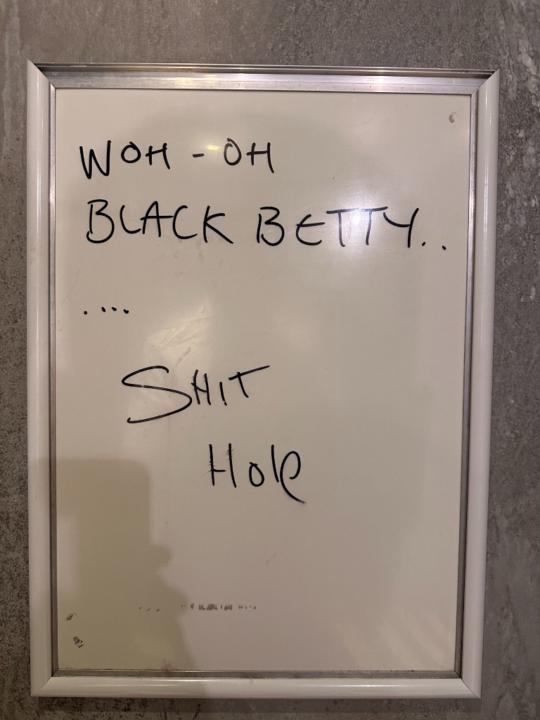 WOH - OH
BLACK BETTY..
....
SHIT
Hole